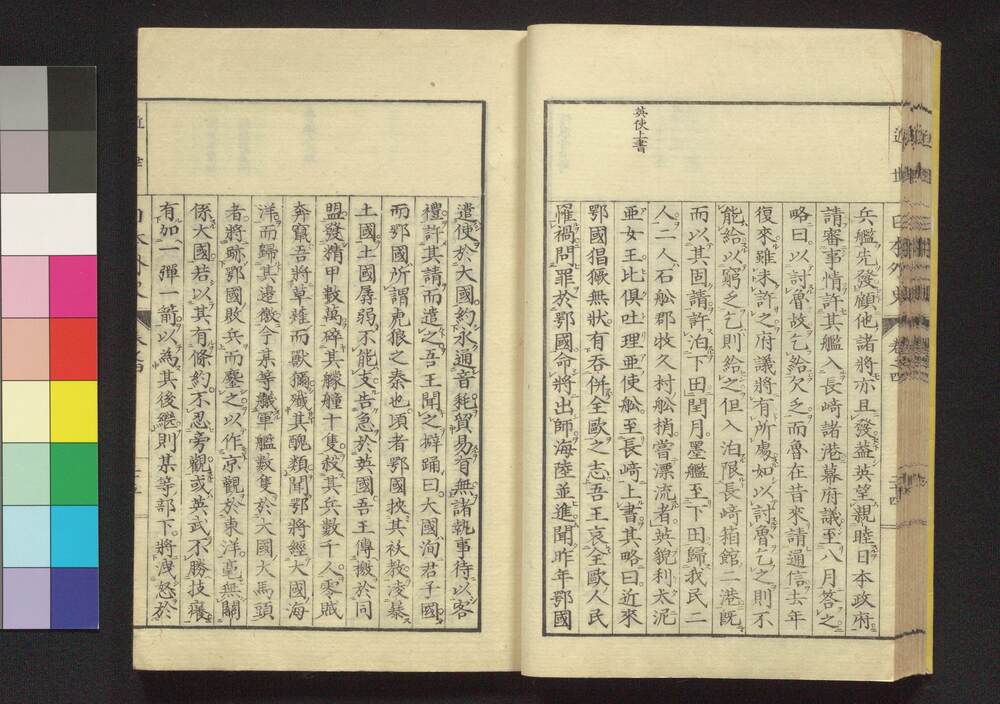 英使上書
近世日本外史 卷之四
兵艦先發顧他諸將亦且發葢英望親睦日本政府
請審事情許其艦入長崎諸港幕府議至八月答之
略曰以討魯故乞給欠乏而魯在昔來請通信去年
復來雖未許之府議將有所處如以討魯乞之則不
能給以窮乏乞則給之但入泊限長崎箱館二港既
而以其固請許泊下田閏月墨艦至下田歸我民二
人二人石舩郡牧久村舩梢嘗漂流者英貌利太泥
亜女王比倶吐理亜使舩至長崎上書其略曰近來
鄂國猖獗無狀有呑併全歐之志吾王哀全歐人民
罹禍問罪於鄂國命將出師海陸並進聞昨年鄂國
遣使於大國約永通音耗貿易有無諸執事待以客
禮許其請而遣之吾王聞之擗踊曰大國洵君子國
而鄂國所謂虎狼之秦也頃者鄂國挾其袄教凌暴
土國土國孱弱不能支告急於英國吾王傳檄於同
盟發精甲數萬碎其艨艟十隻殺其兵數千人零賊
奔竄吾將草薙而獸獮殲其醜類聞鄂將經大國海
洋而歸其邊徼令某等艤軍艦數隻於大國大馬頭
者將跡鄂國敗兵而鏖之以作京觀於東洋毫無關
係大國若以其有條約不忍旁觀或英武不勝技癢
有加一彈一箭以為其後繼則某等部下將洩怒於